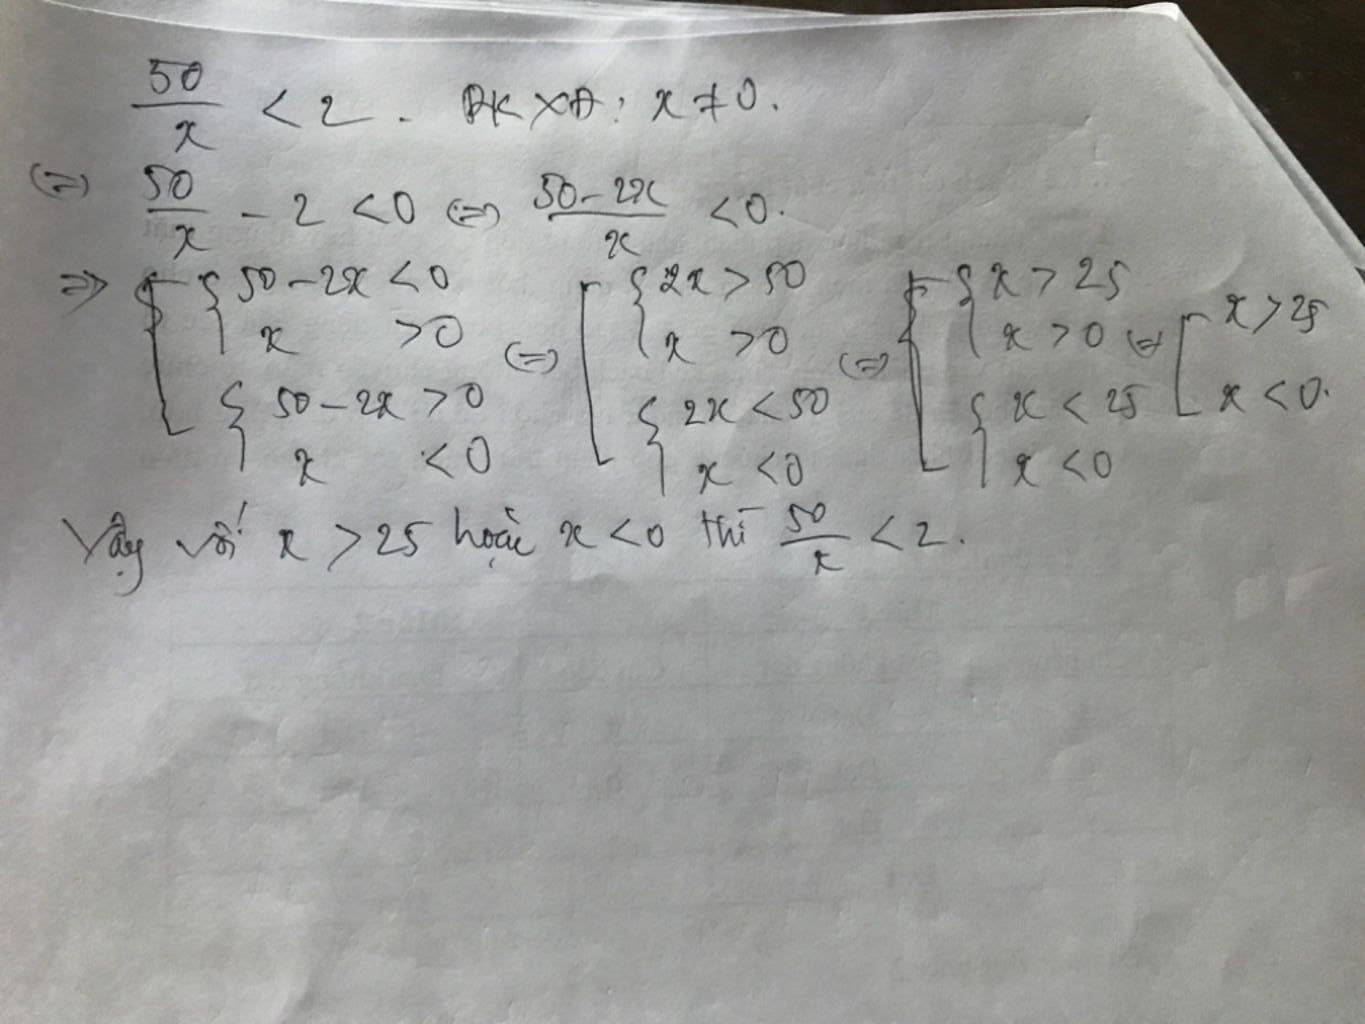 50/x < 2. ĐKXĐ: x ≠ 0.
(=) 50/x - 2 < 0 (=) (50-2x)/x < 0.
=> [ { 50-2x < 0 (=) [ { 2x > 50 (=) [ { x > 25 (=) [ x > 25
x > 0 x > 0 x > 0
{ 50-2x > 0 { 2x < 50 { x < 25 x < 0.
x < 0 x < 0 x < 0
Vậy với x > 25 hoặc x < 0 thì 50/x < 2.